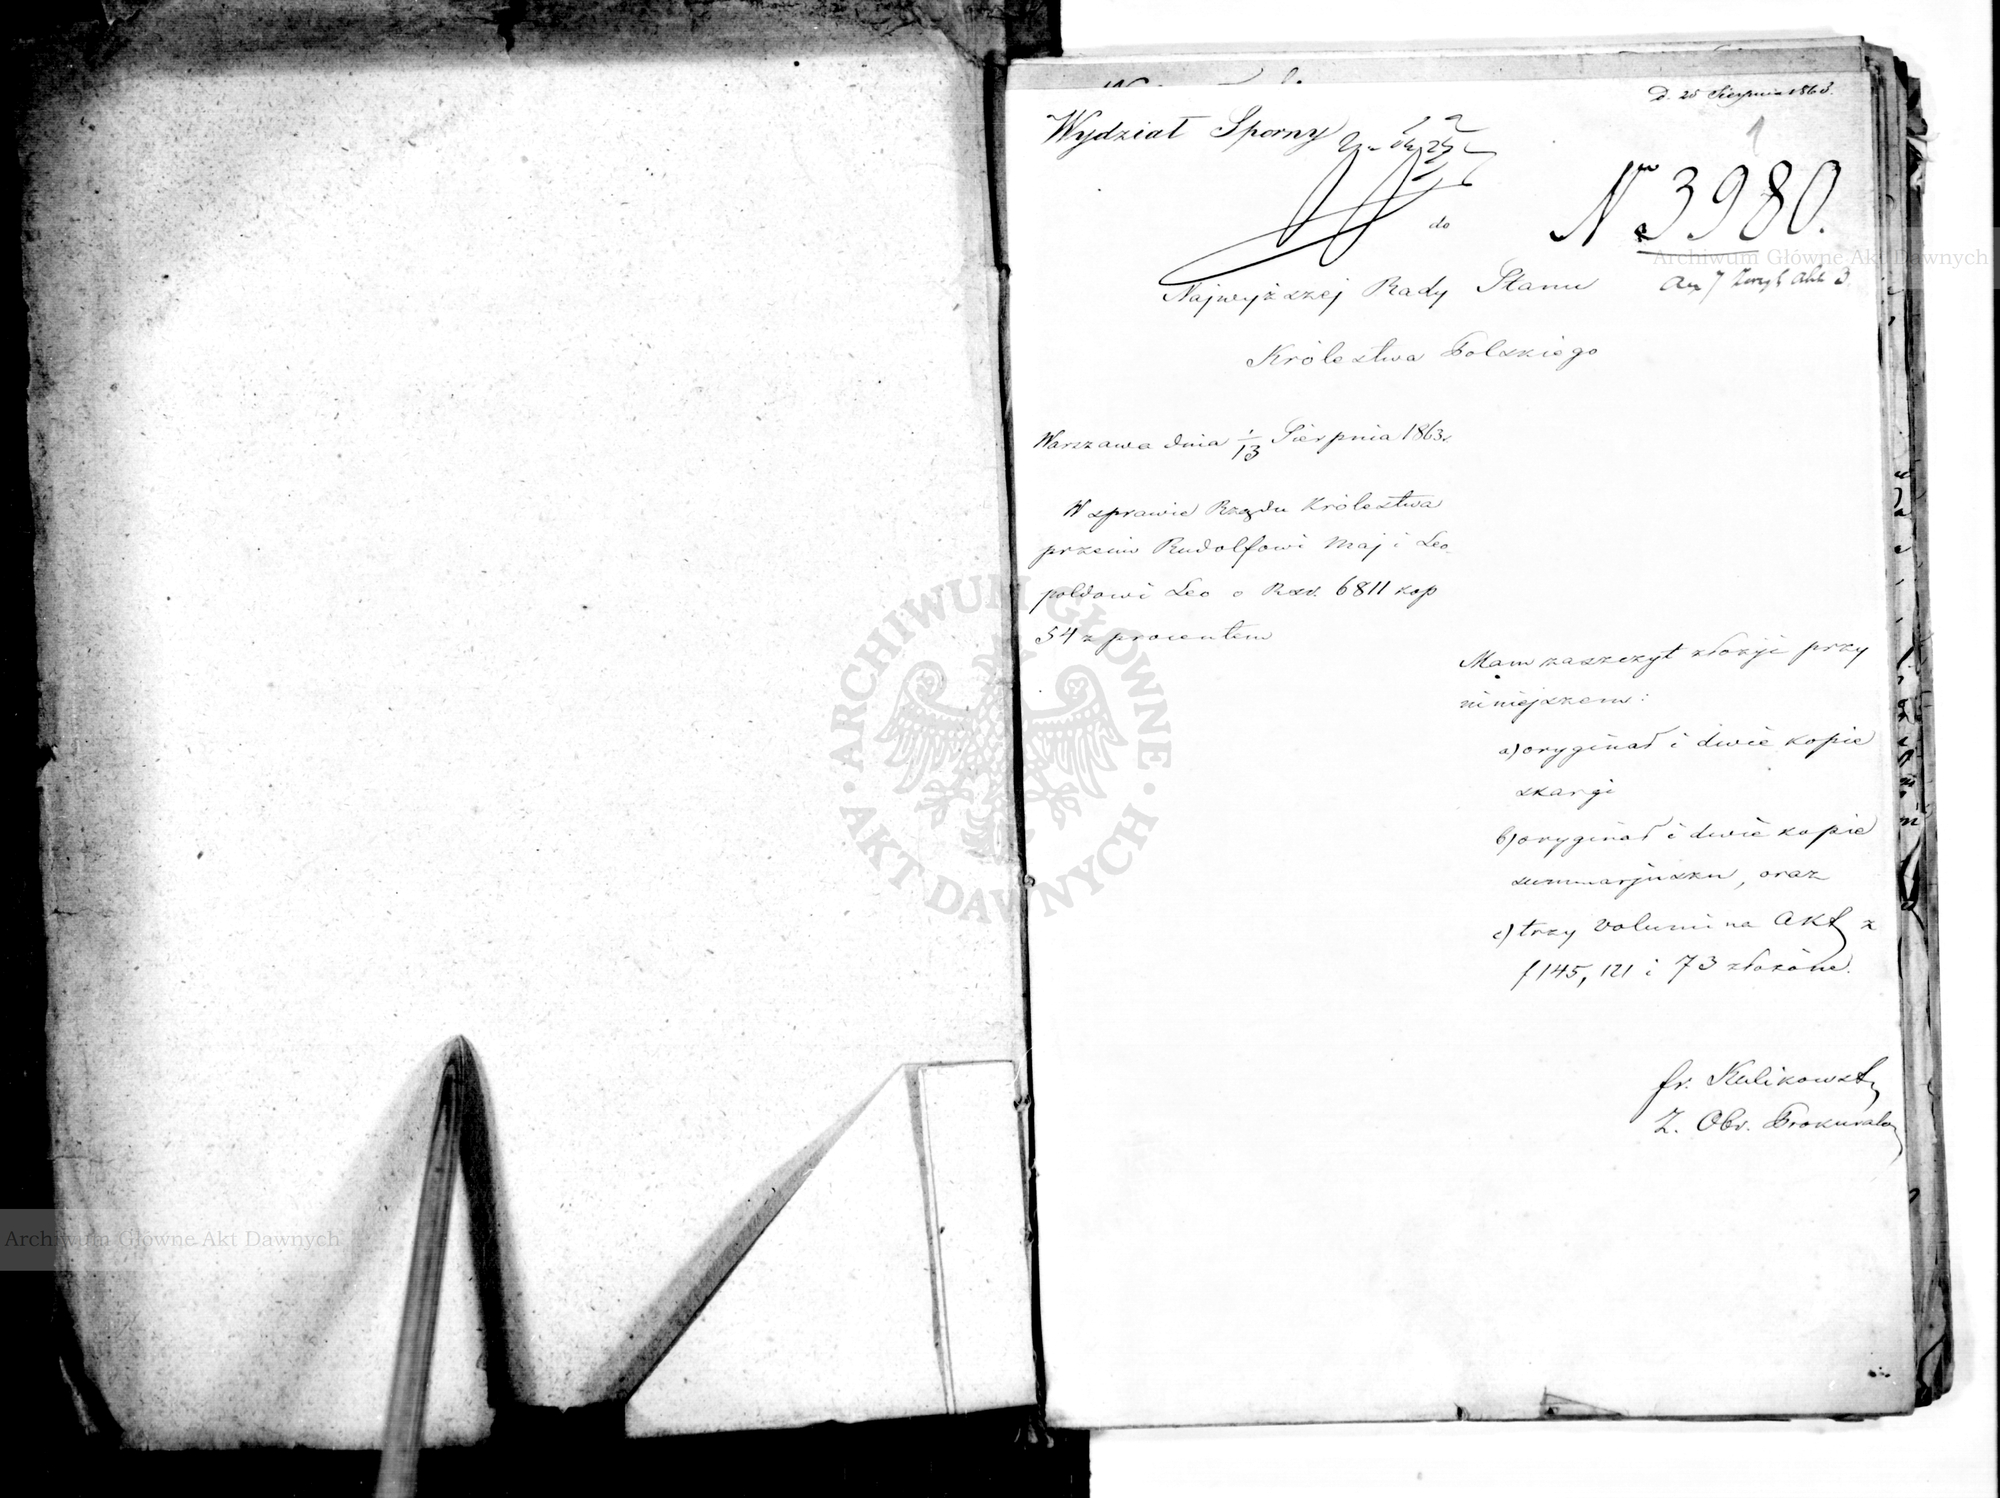 D. 25 Sierpnia 1863.
1
Wydział Sporny
No 3980.
do
Najwyższej Rady Stanu
Królestwa Polskiego
Warszawa dnia 1/13 Sierpnia 1863 r.
W sprawie Rządu Królestwa
przeciw Rudolfowi Maj i Leo
poldowi Leo o Rsr. 6811 kop
54 z procentem
Mam zaszczyt złożyć przy
niniejszem:
a) oryginał i dwie kopie
skargi
b) oryginał i dwie kopie
summarjuszu, oraz
c) trzy volumina Akt z
f 145, 121 i 73 złożone.
fr. Kulikowski
Z. Obr. Prokurator
Archiwum Główne Akt Dawnych
ARCHIWUM GŁÓWNE
· AKT DAWNYCH ·
Archiwum Główne Akt Dawnych